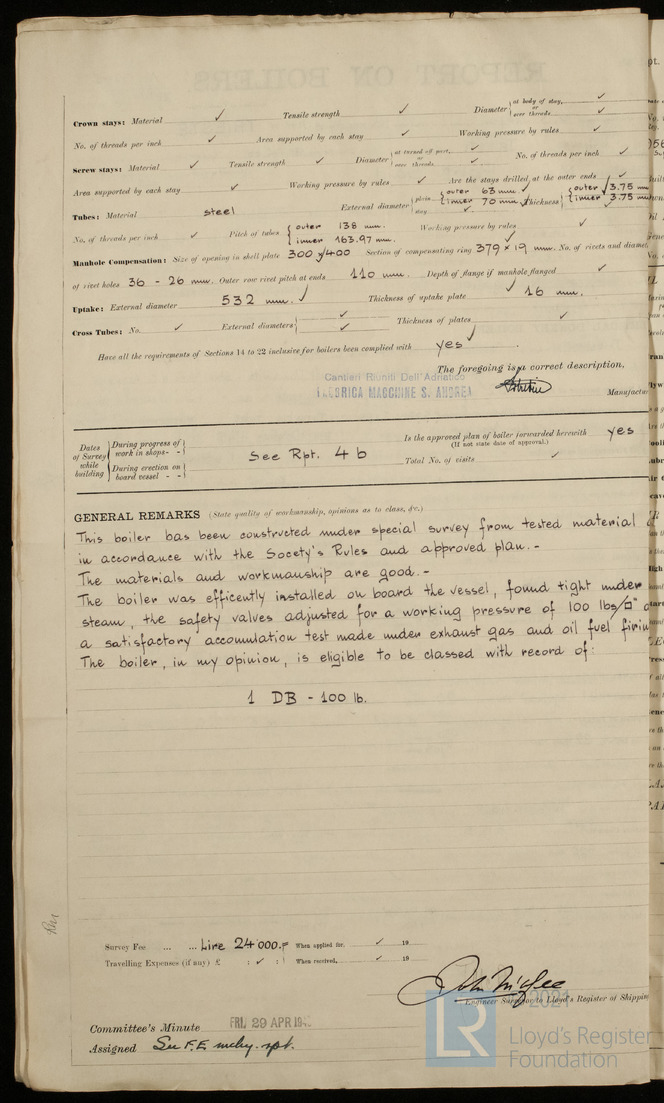 Crown stays: Material ✓ Tensile strength ✓ Diameter { at body of stay, ✓ or over threads ✓
No. of threads per inch ✓ Area supported by each stay ✓ Working pressure by rules ✓
Screw stays: Material ✓ Tensile strength ✓ Diameter { at turned off part, ✓ or over threads ✓ No. of threads per inch ✓
Area supported by each stay ✓ Working pressure by rules ✓ Are the stays drilled at the outer ends ✓
Tubes: Material steel External diameter { plain outer 63 mm. inner 70 mm. stay ✓ Thickness { outer 3.75 mm inner 3.75 mm
No. of threads per inch ✓ Pitch of tubes { outer 138 mm. inner 163.97 mm. Working pressure by rules ✓
Manhole Compensation: Size of opening in shell plate 300 x 400 Section of compensating ring 379 x 19 mm. No. of rivets and diamet
of rivet holes 36 - 26 mm. Outer row rivet pitch at ends 110 mm. Depth of flange if manhole flanged ✓
Uptake: External diameter 532 mm. ✓ Thickness of uptake plate ✓ 16 mm.
Cross Tubes: No. ✓ External diameters { ✓ ✓ Thickness of plates ✓
Have all the requirements of Sections 14 to 22 inclusive for boilers been complied with yes ✓
The foregoing is a correct description,
Cantieri Riuniti Dell'Adriatico
FABBRICA MACCHINE S. ANDREA Manufactur
Dates of Survey while building { During progress of work in shops - - During erection on board vessel - - } See Rpt. 4 b
Is the approved plan of boiler forwarded herewith (If not state date of approval.) yes
Total No. of visits ✓
GENERAL REMARKS (State quality of workmanship, opinions as to class, &c.)
This boiler has been constructed under special survey from tested material
in accordance with the Socety's Rules and approved plan.-
The materials and workmanship are good.-
The boiler was efficently installed on board the vessel, found tight under
steam, the safety valves adjusted for a working pressure of 100 lbs/□"
a satisfactory accumulation test made under exhaust gas and oil fuel firin
The boiler, in my opinion, is eligible to be classed with record of:
1 DB - 100 lb.
Survey Fee ... ... Lire 24'000.= When applied for, ✓ 19
Travelling Expenses (if any) £ : ✓ : When received, ✓ 19
John McAfee
Engineer Surveyor to Lloyd's Register of Shipping
Committee's Minute FRI. 29 APR 19
Assigned See F.E. mchy. rpt.
2021
LR
Lloyd's Register
Foundation